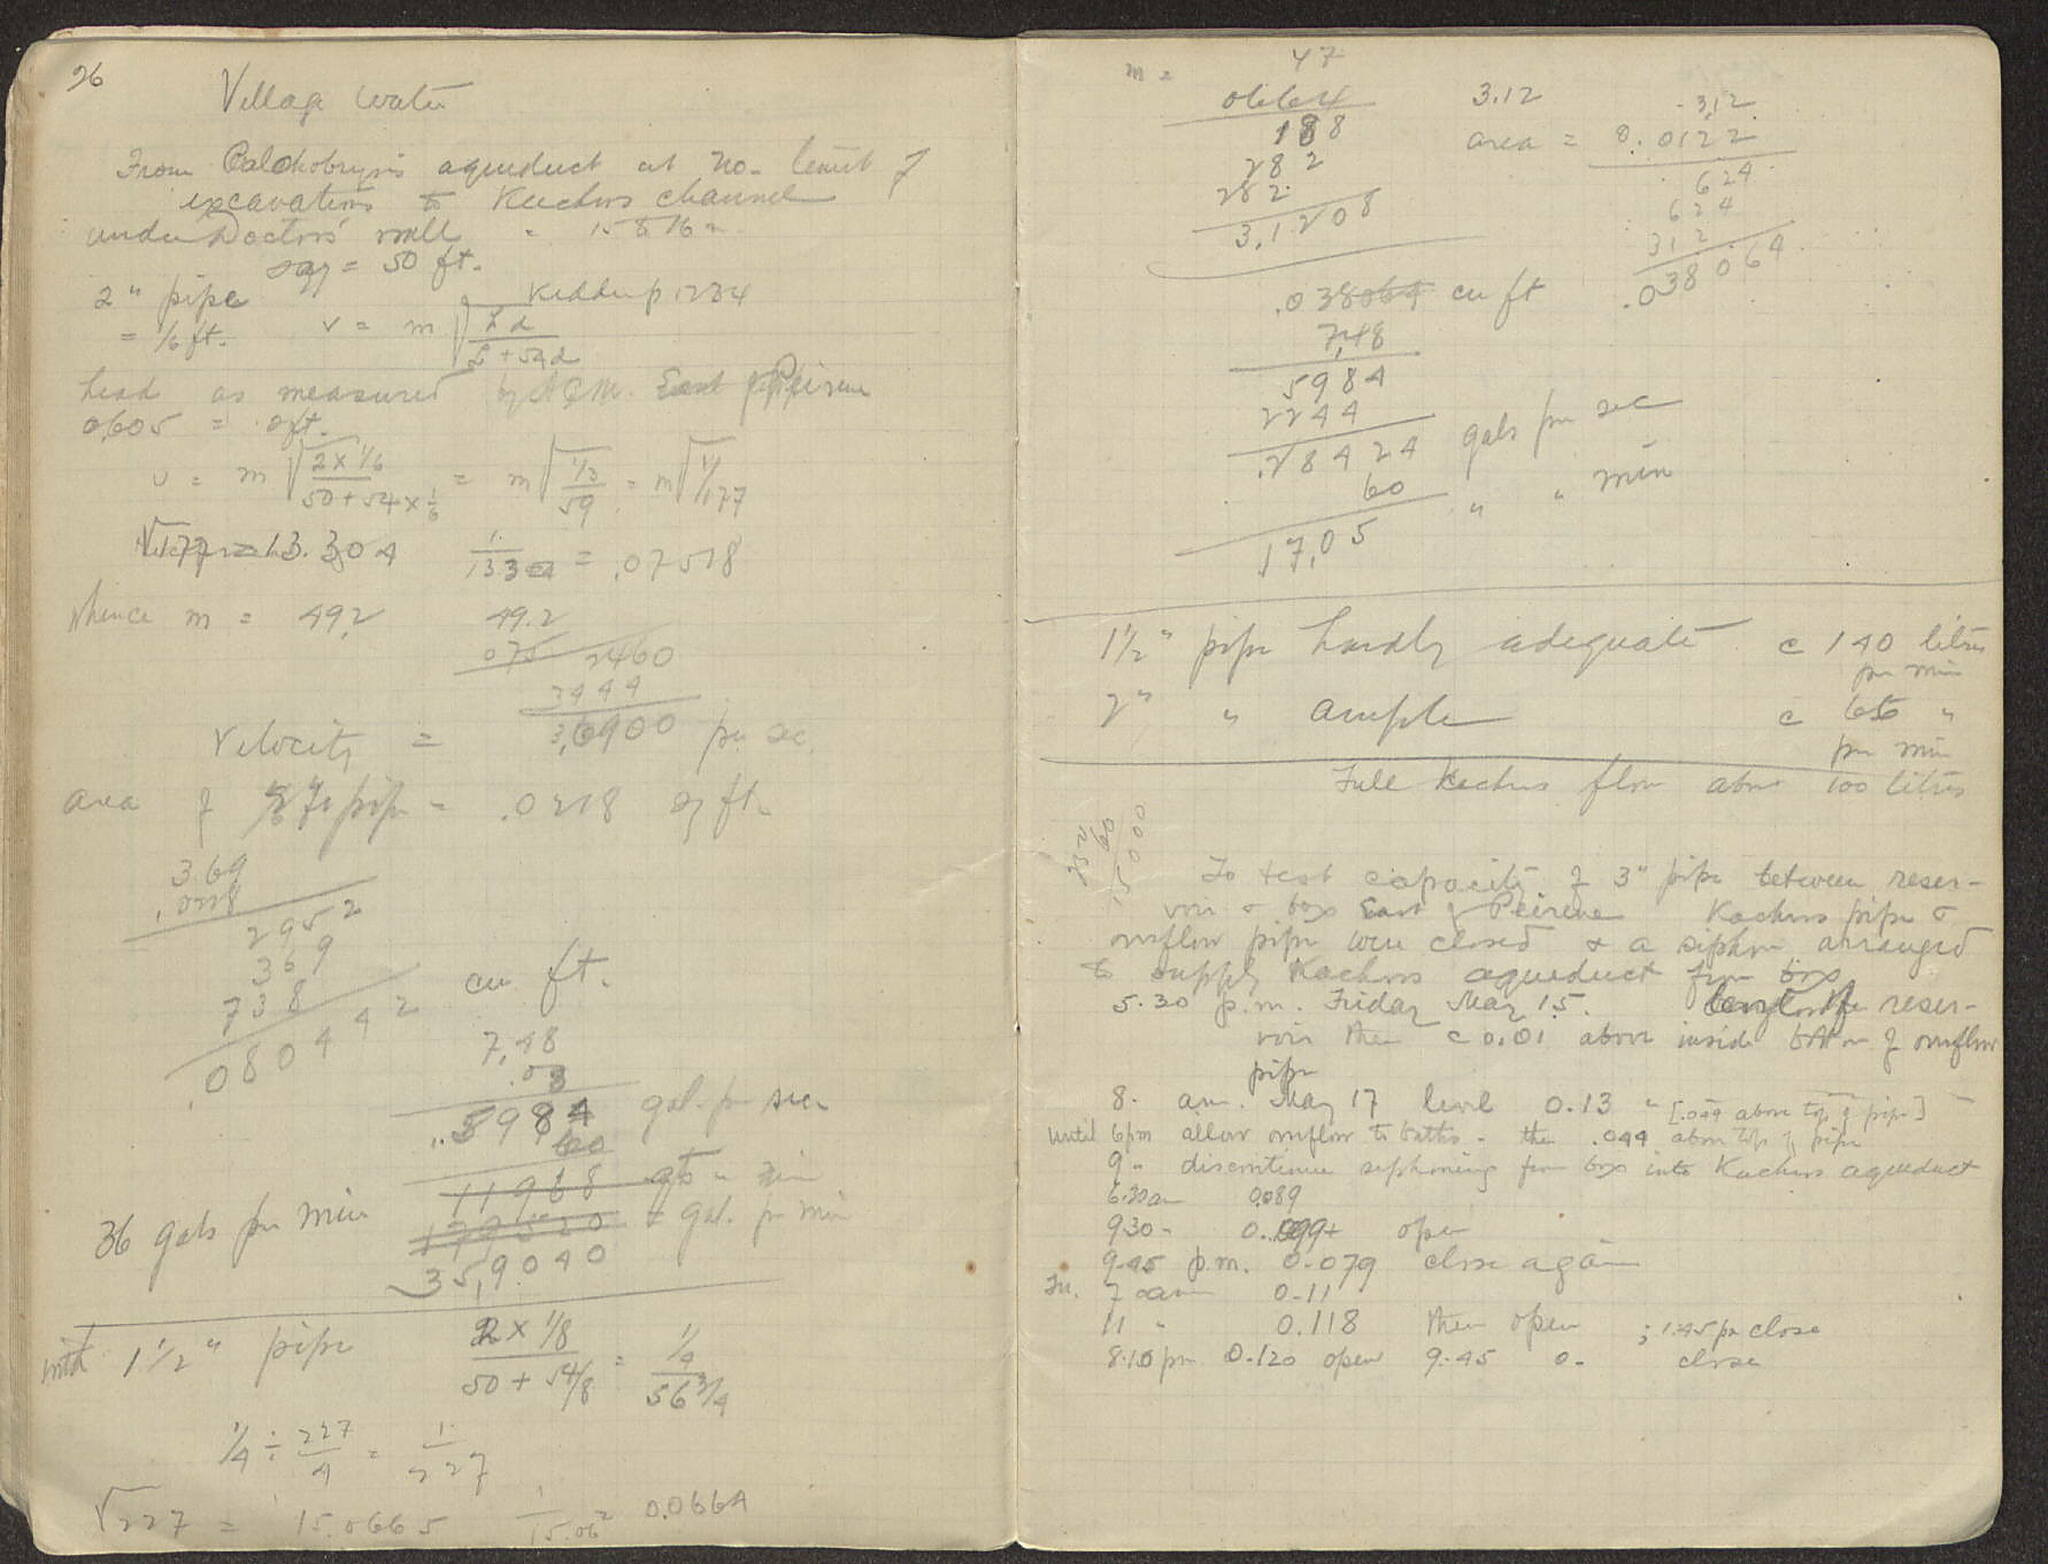 26
Village Water
From Palaiobrysis aqueduct at no. limit of
excavations to Kachros channel
under Doctors' wall = 15 &
say = 50 ft.
2" pipe Kidder p. 1234
= 1/6 ft. v = m √ h d / L + 54 d
head as measured by East of Peirene
0.605 = 2 ft.
v = m √ 2 x 1/6 / 50 + 54 x 1/6 = m √ 1/3 / 59 = m √ 1/177
√177 = 13.304 1/13304 = .07518
Whence m = 49.2 49.2
075 2460
3444
Velocity = 3,6900 per sec.
area of 2" pipe = .0218 sq ft.
369
.0218
2952
369
738
.080442 cu ft.
7,48
.08
.5984 gal. per sec
60
11968 gals " min
179520 = gal. per min
36 gals per min 35,9040
with 1 1/2" pipe 2 x 1/8 / 50 + 54/8 = 1/4 / 56 3/4
1/4 ÷ 227/4 = 1/227
√227 = 15.0665 1/15.06 0.0664
m = 47
0664
188
282
282
3,1208
3.12
area = 0.0122
3,12
624
624
312
.038064
.038064 cu ft
7,48
5984
2244
.28424 gals per sec
60 " " min
17,05
1 1/2" pipe hardly adequate c 140 litres
per min
2" " ample c 66 "
per min
Full Kachros flow above 100 litres
60
15000
To test capacity of 3" pipe between reser-
voir & box East of Peirene Kachros pipe &
overflow pipe were closed & a siphon arranged
to supply Kachros aqueduct from box
5.30 p.m. Friday May 15. level of reser-
voir then c 0.01 above inside bottom of overflow
pipe
8. am. May 17 level 0.13 " [.044 above top of pipe]
until 6pm allow overflow to baths - then .044 above top of pipe
9 " discontinue siphoning from box into Kachros aqueduct
6.30 am 0.089
930 - 0.099+ open
9.45 p.m. 0.079 close again
Tu. 7 am 0.11
11 " 0.118 then open ; 1.45 pm close
8.10 pm 0.120 open 9.45 0. close